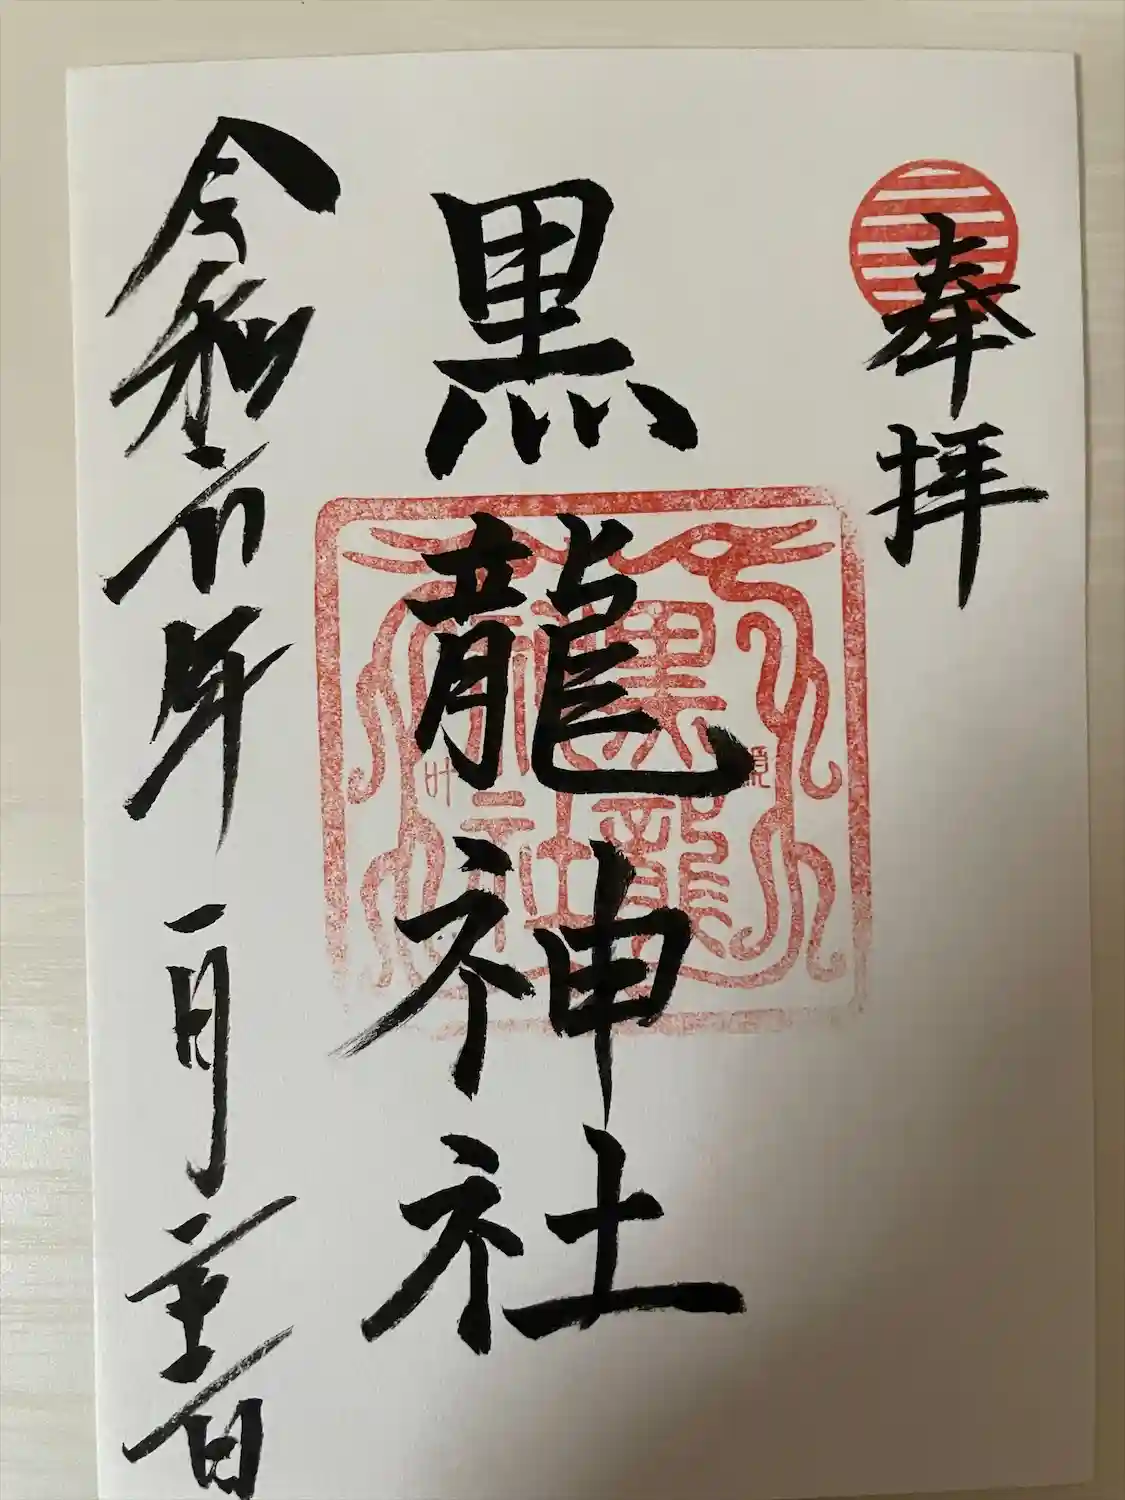 奉拝
黒龍神社
令和六年一月日
黒龍
神社
叶